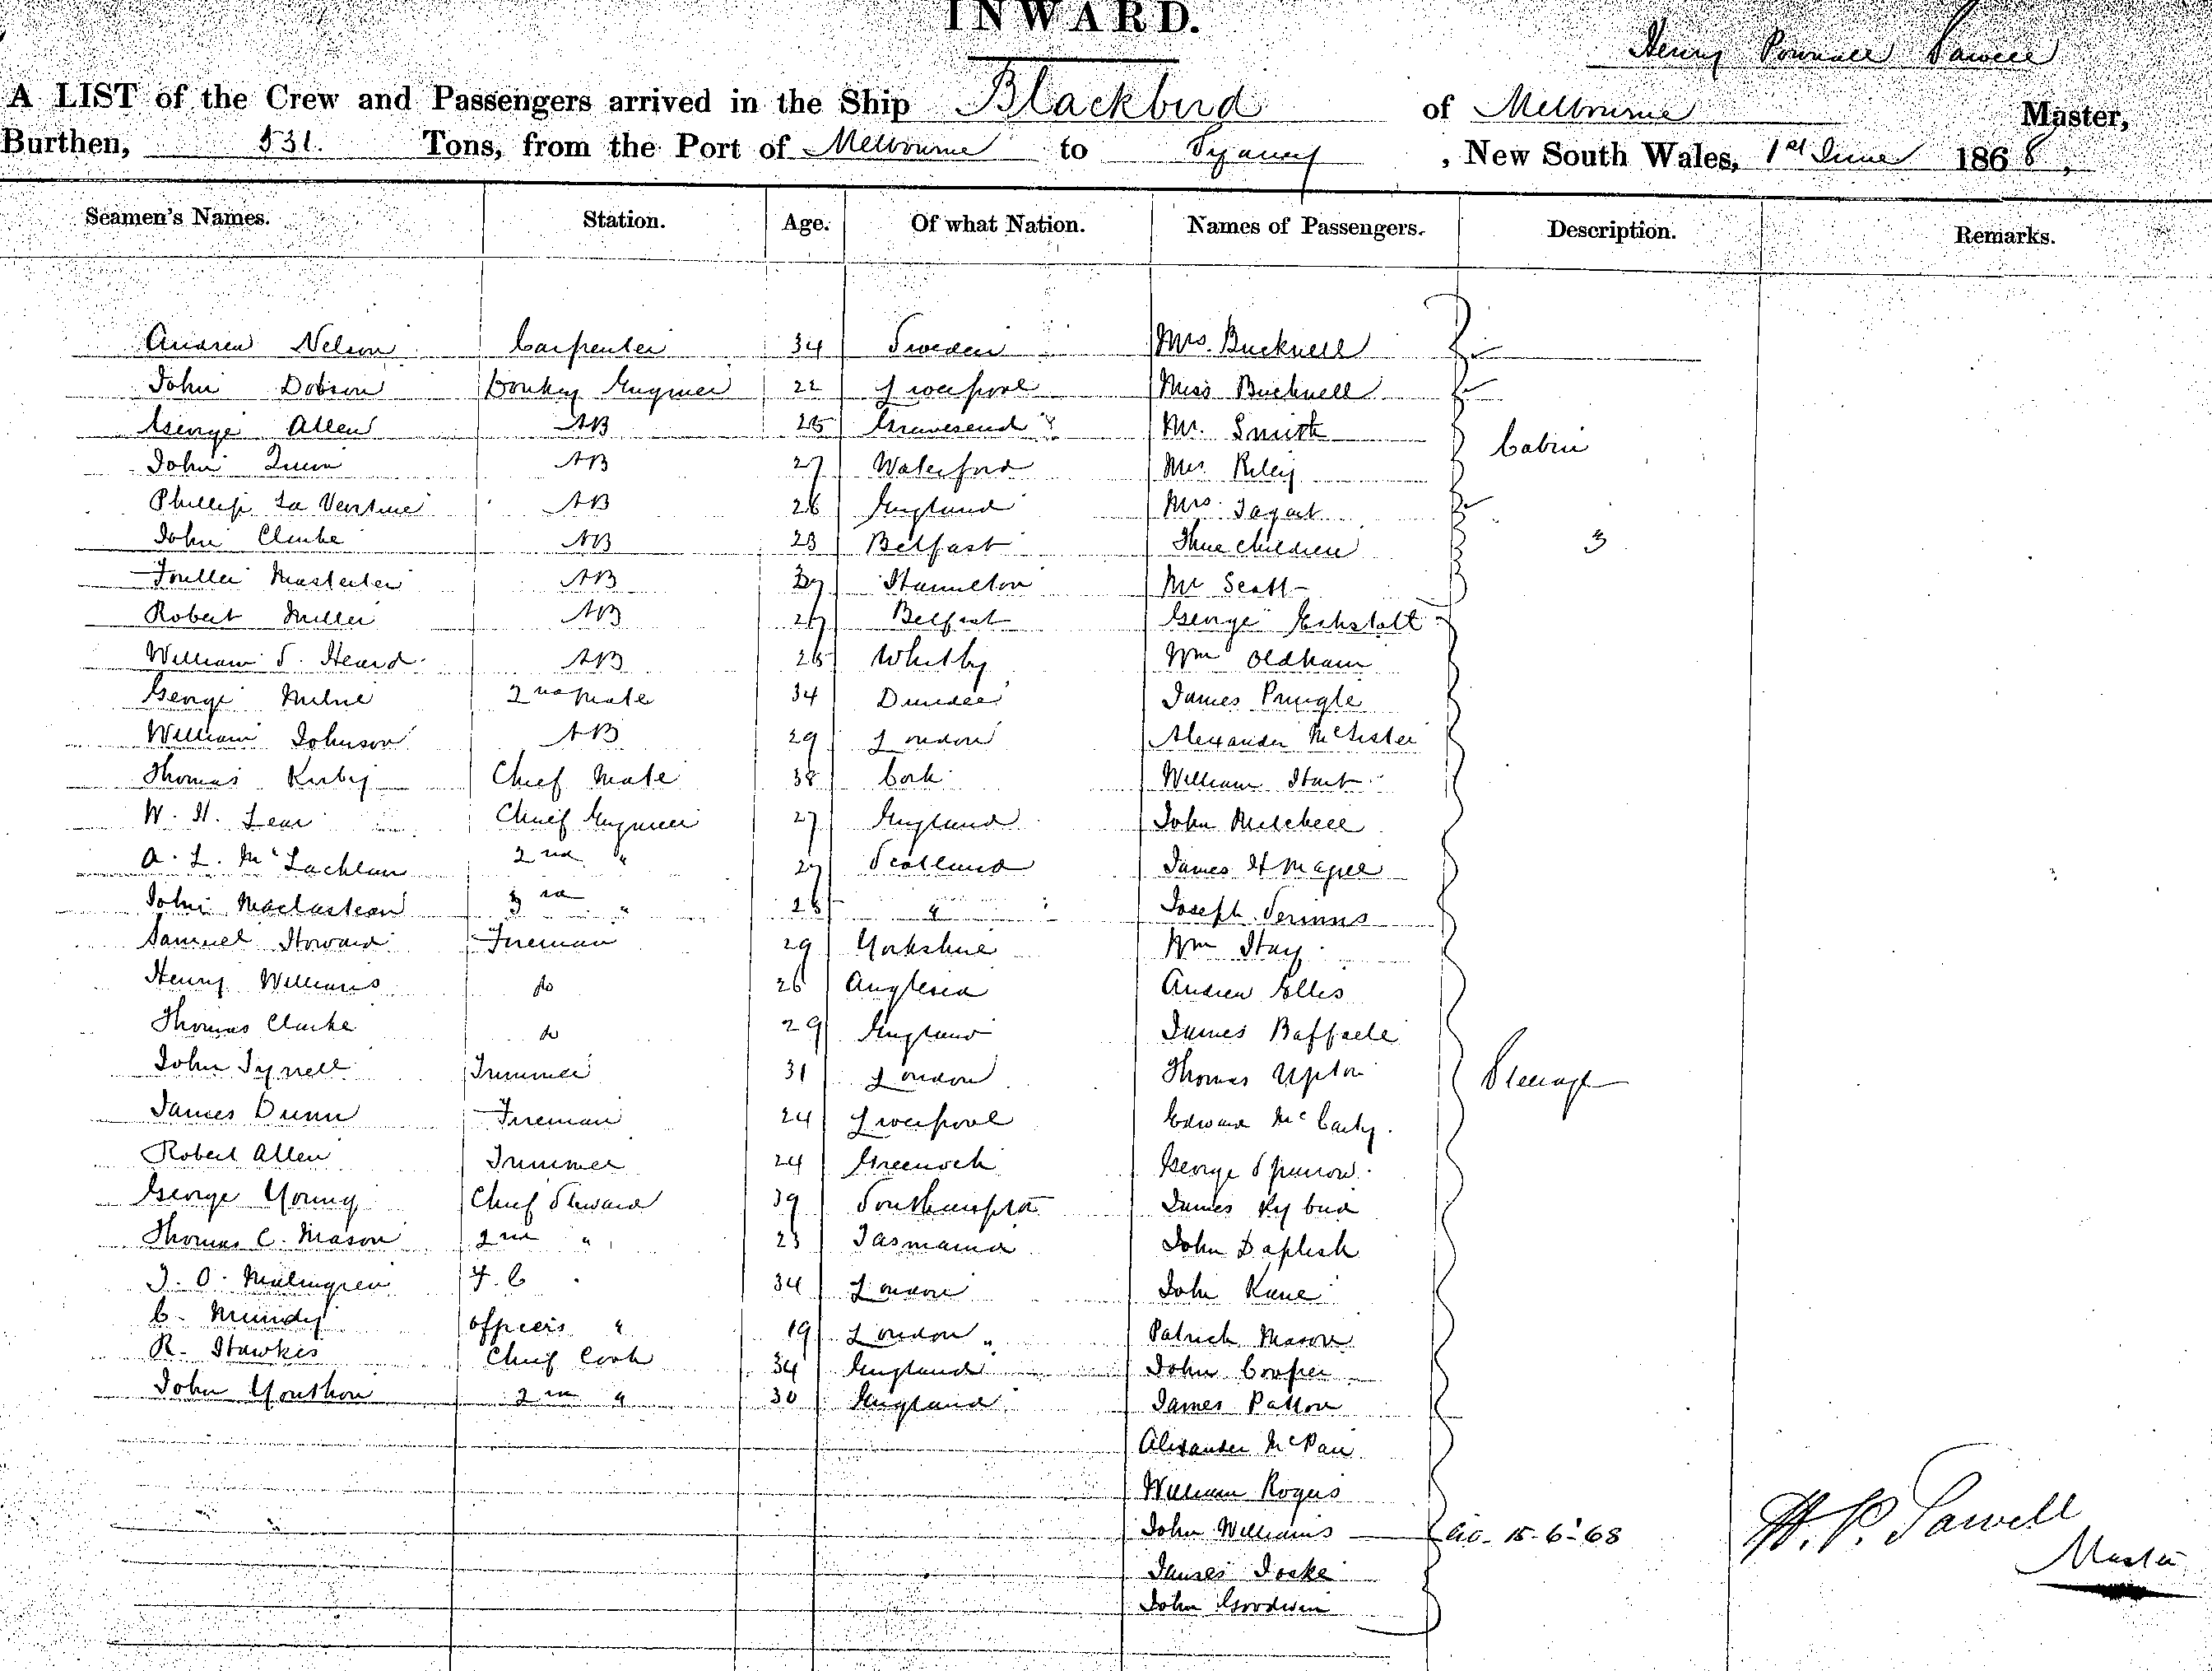 INWARD.
Henry Pownall
A LIST of the Crew and Passengers arrived in the Ship Blackbird of Melbourne Master,
Burthen, 531. Tons, from the Port of Melbourne to Sydney, New South Wales, 1st June 1868,
Seamen's Names. Station. Age. Of what Nation. Names of Passengers. Description. Remarks.
Andrew Nelson Carpenter 34 Sweden Mrs. Bucknell
John Dobson Donkey Engineer 22 Liverpool Miss Bucknell
George Allen AB 25 Gravesend Mr. Smith Cabin
John Quin AB 27 Waterford Riley
Phillip La AB 26 England Mrs. Tagart
John Clarke AB 23 Belfast Three children 3
AB Hamilton Mr Scott
Robert Miller AB Belfast George
William S. Heard AB 25 Whitby Wm Oldham
George Milne 2nd Mate 34 Dundee James Pringle
William Johnson AB 29 London Alexander
Thomas Kirby Chief Mate 38 Cork William Hart
W. H. Lear Chief Engineer 27 England John Mitchell
A. L. McLachlan 2nd " 27 Scotland James H Magee
John 3rd " "  Joseph
Samuel Howard Fireman 29 Yorkshire Wm Hay
Henry Williams do 26 Anglesea Andrew Ellis
Thomas Clarke do 29 England James
John Tyrrell Trimmer 31 London Thomas Upton Steerage
James Dunn Fireman 24 Liverpool Edward McCarty.
Robert Allen Trimmer 24 Greenock George Sparrow
George Young Chief Steward 39 Southampton James
Thomas C. Mason 2nd " 23 Tasmania John Daplish
J. O. Malmgren F. C 34 London John Kane
C. Mundy officers " 19 London Patrick Mason
R. Hawkes Chief Cook 34 England John Cooper
John 2nd " 30 England James Patton
Alexander
William Rogers
John Williams 15-6-'68
James
John Goodwin
H. P. Master